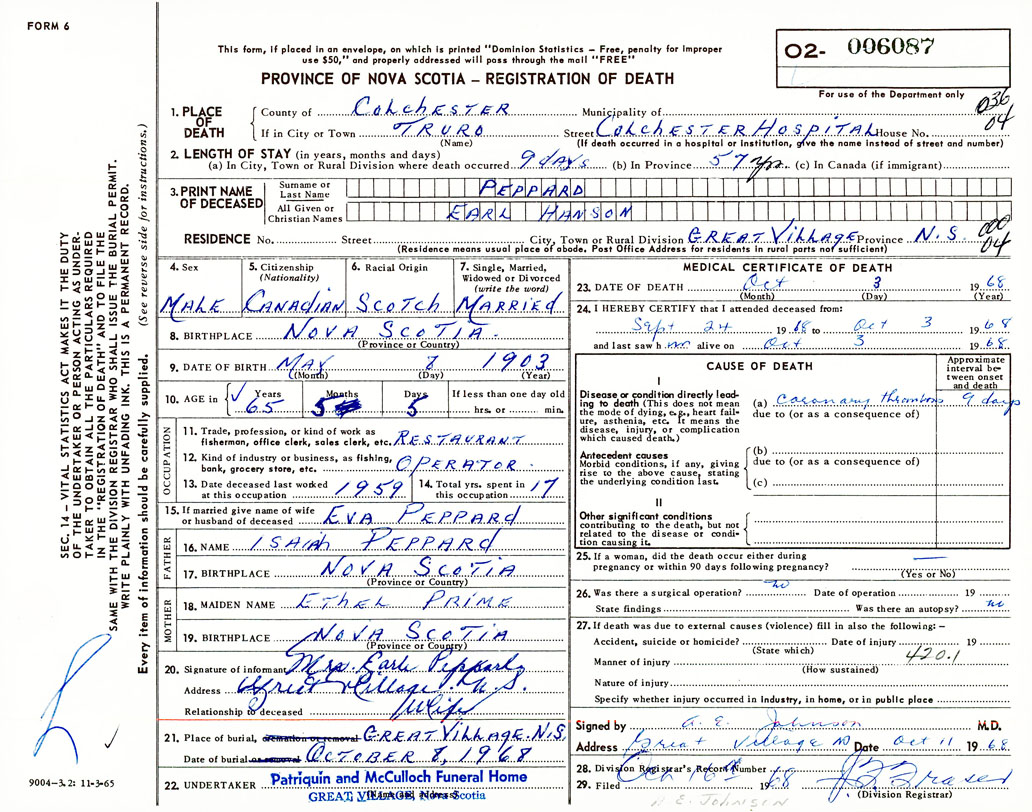 FORM 6
This form, if placed in an envelope, on which is printed "Dominion Statistics – Free, penalty for improper
use $50," and properly addressed will pass through the mail "FREE"
PROVINCE OF NOVA SCOTIA – REGISTRATION OF DEATH
02- 006087
For use of the Department only
036
04
1. PLACE OF DEATH
County of COLCHESTER Municipality of
If in City or Town TRURO Street COLCHESTER HOSPITAL House No.
(Name) (If death occurred in a hospital or institution, give the name instead of street and number)
2. LENGTH OF STAY (in years, months and days)
(a) In City, Town or Rural Division where death occurred 9 days (b) In Province 57 yrs. (c) In Canada (if immigrant)
3. PRINT NAME OF DECEASED
Surname or Last Name PEPPARD
All Given or Christian Names EARL HANSON
000
04
RESIDENCE No. Street City, Town or Rural Division GREAT VILLAGE Province N.S.
(Residence means usual place of abode. Post Office Address for residents in rural parts not sufficient)
4. Sex
MALE
5. Citizenship (Nationality)
CANADIAN
6. Racial Origin
SCOTCH
7. Single, Married, Widowed or Divorced (write the word)
MARRIED
8. BIRTHPLACE NOVA SCOTIA.
(Province or Country)
9. DATE OF BIRTH MAY 8 1903
(Month) (Day) (Year)
10. AGE in Years 65 Months 5 Days 5
If less than one day old
hrs. or min.
OCCUPATION
11. Trade, profession, or kind of work as
fisherman, office clerk, sales clerk, etc. RESTAURANT
12. Kind of industry or business, as fishing,
bank, grocery store, etc. OPERATOR.
13. Date deceased last worked
at this occupation 1959
14. Total yrs. spent in
this occupation 17
15. If married give name of wife
or husband of deceased EVA PEPPARD
FATHER
16. NAME ISAIAH PEPPARD
17. BIRTHPLACE NOVA SCOTIA
(Province or Country)
MOTHER
18. MAIDEN NAME ETHEL PRIME
19. BIRTHPLACE NOVA SCOTIA
(Province or Country)
20. Signature of informant Mrs. Earle Peppard
Address Great Village. N.S.
Relationship to deceased Wife
21. Place of burial, cremation or removal GREAT VILLAGE. N.S.
Date of burial or removal OCTOBER 8, 1968
22. UNDERTAKER Patriquin and McCulloch Funeral Home
GREAT VILLAGE, Nova Scotia
MEDICAL CERTIFICATE OF DEATH
23. DATE OF DEATH Oct 3 1968
(Month) (Day) (Year)
24. I HEREBY CERTIFY that I attended deceased from:
Sept 24 1968 to Oct 3 1968
and last saw him alive on Oct 3 1968.
CAUSE OF DEATH
Approximate interval between onset and death
I
Disease or condition directly leading
to death (This does not mean
the mode of dying, e.g., heart failure,
asthenia, etc. It means the
disease, injury, or complication
which caused death.)
(a) coronary thrombosis 9 days
due to (or as a consequence of)
Antecedent causes
Morbid conditions, if any, giving
rise to the above cause, stating
the underlying condition last.
(b)
due to (or as a consequence of)
(c)
II
Other significant conditions
contributing to the death, but not
related to the disease or condition
causing it.
25. If a woman, did the death occur either during
pregnancy or within 90 days following pregnancy? —
(Yes or No)
26. Was there a surgical operation? no Date of operation 19
State findings Was there an autopsy? no
27. If death was due to external causes (violence) fill in also the following: –
Accident, suicide or homicide? Date of injury 19
(State which) 420.1
Manner of injury
(How sustained)
Nature of injury
Specify whether injury occurred in Industry, in home, or in public place
Signed by A. E. Johnson M.D.
Address Great Village NS Date Oct 11 1968.
28. Division Registrar's Record Number
29. Filed 1968 Fraser
(Division Registrar)
A. E. JOHNSON
SEC. 14 – VITAL STATISTICS ACT MAKES IT THE DUTY
OF THE UNDERTAKER OR PERSON ACTING AS UNDER-
TAKER TO OBTAIN ALL THE PARTICULARS REQUIRED
IN THE "REGISTRATION OF DEATH" AND TO FILE THE
SAME WITH THE DIVISION REGISTRAR WHO SHALL ISSUE THE BURIAL PERMIT.
WRITE PLAINLY WITH UNFADING INK. THIS IS A PERMANENT RECORD.
Every item of information should be carefully supplied. (See reverse side for instructions.)
9004–3.2: 11-3-65